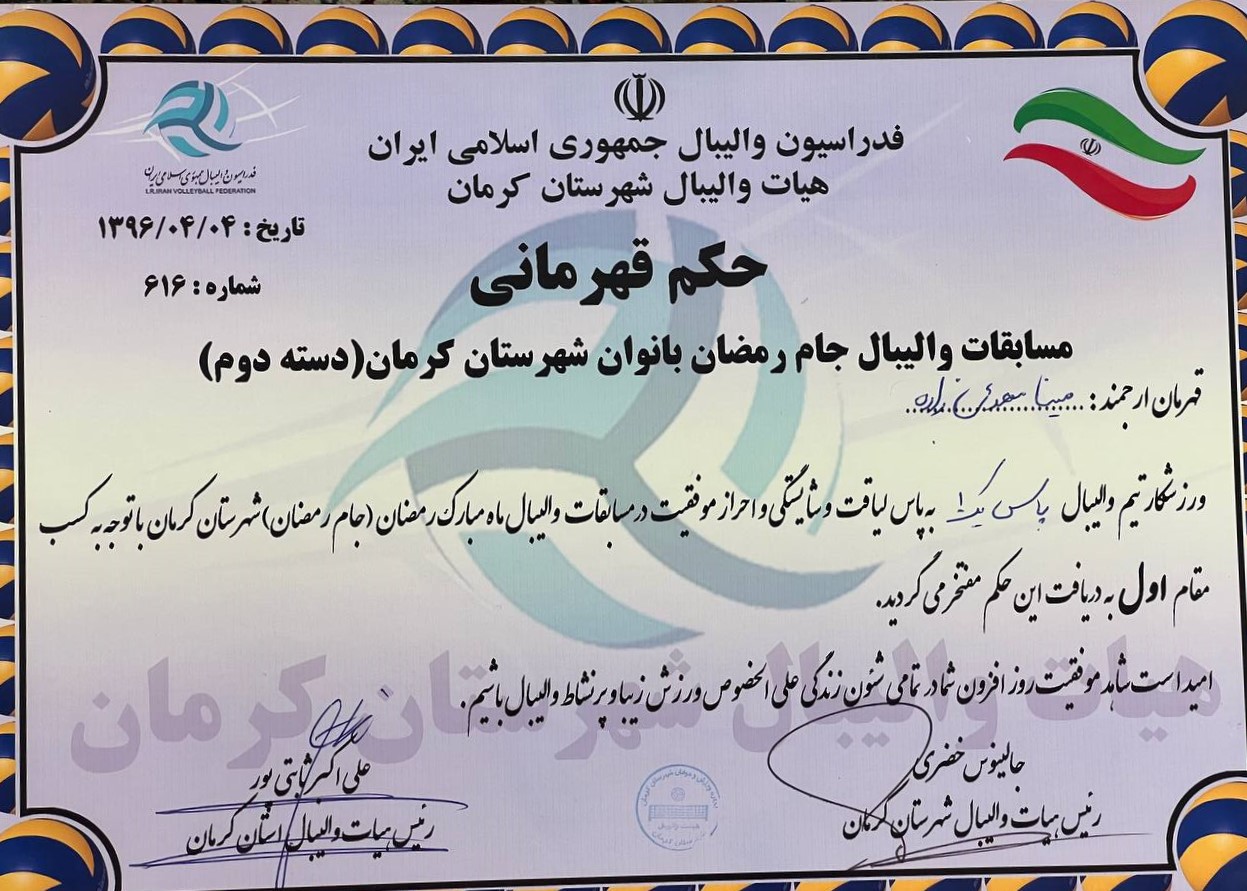 فدراسیون والیبال جمهوری اسلامی ایران
هیات والیبال شهرستان کرمان
فدراسیون والیبال جمهوری اسلامی ایران
I.R.IRAN VOLLEYBALL FEDERATION
تاریخ : ۱۳۹۶/۰۴/۰۴
شماره : ۶۱۶
حکم قهرمانی
مسابقات والیبال جام رمضان بانوان شهرستان کرمان(دسته دوم)
قهرمان ارجمند : مینا
ورزشکار تیم والیبال پاس یک ۱ به پاس لیاقت و شایستگی و احراز موفقیت در مسابقات والیبال ماه مبارک رمضان (جام رمضان) شهرستان کرمان با توجه به کسب
مقام اول به دریافت این حکم مفتخر می گردید.
امید است شاهد موفقیت روز افزون شما در تمامی شئون زندگی علی الخصوص ورزش زیبا و پر نشاط والیبال باشیم.
هیات والیبال شهرستان کرمان
جالینوس خضری
رئیس هیات والیبال شهرستان کرمان
علی اکبر ثابتی پور
رئیس هیات والیبال استان کرمان